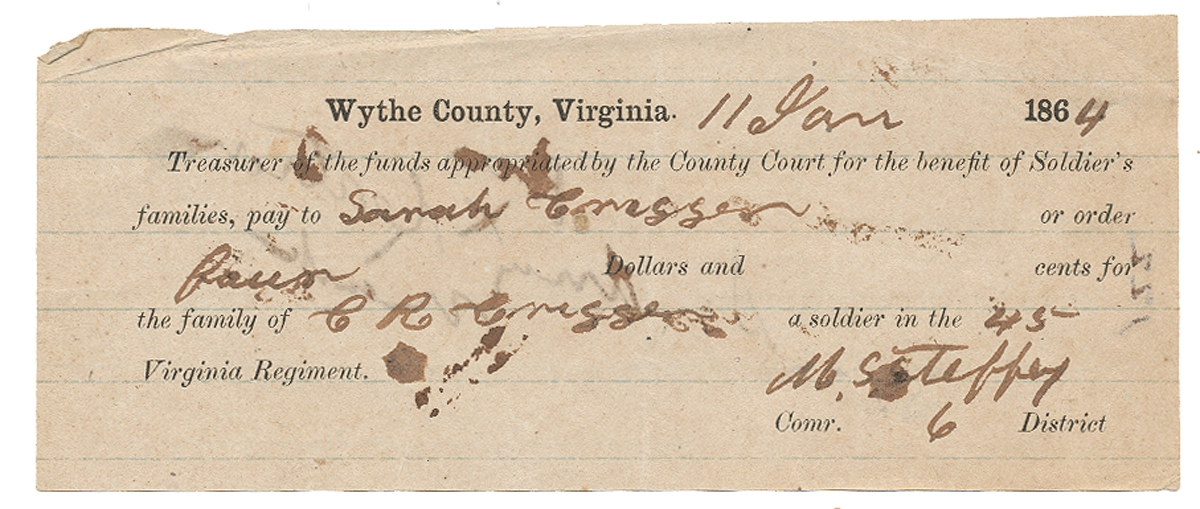 Wythe County, Virginia. 11 Jan 1864
Treasurer of the funds appropriated by the County Court for the benefit of Soldier's
families, pay to Sarah Cregger or order
four Dollars and cents for
the family of C R Cregger a soldier in the 45
Virginia Regiment. M. Steffey
Comr. 6 District